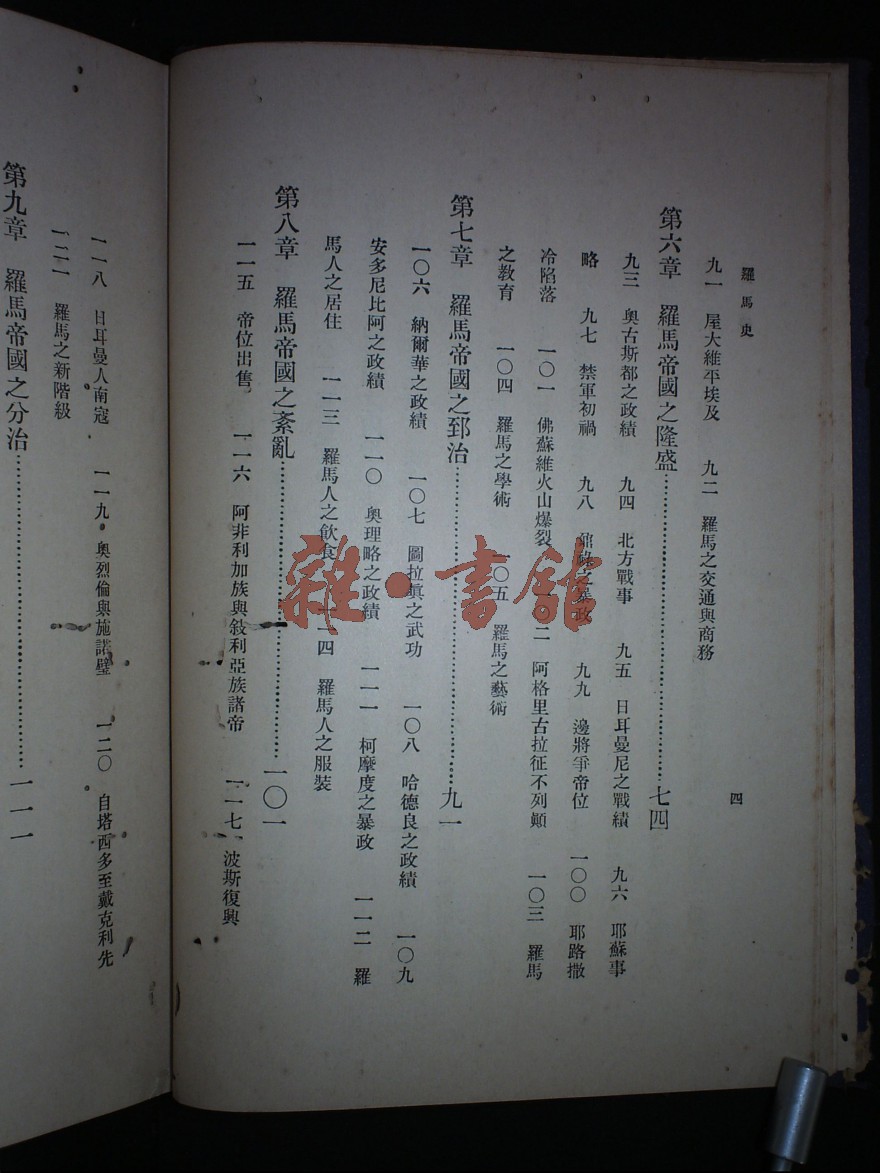 羅馬史
四
九一　屋大維平埃及　九二　羅馬之交通與商務
第六章　羅馬帝國之隆盛……七四
九三　奥古斯都之政績　九四　北方戰事　九五　日耳曼尼之戰績　九六　耶蘇事
略　九七　禁軍初禍　九八　之暴政　九九　邊將爭帝位　一〇〇　耶路撒
冷陷落　一〇一　佛蘇維火山爆裂　一〇二　阿格里古拉征不列顛　一〇三　羅馬
之教育　一〇四　羅馬之學術　一〇五　羅馬之藝術
第七章　羅馬帝國之郅治……九一
一〇六　納爾華之政績　一〇七　圖拉眞之武功　一〇八　哈德良之政績　一〇九
安多尼比阿之政績　一一〇　奥理略之政績　一一一　柯摩度之暴政　一一二　羅
馬人之居住　一一三　羅馬人之飲食　一一四　羅馬人之服裝
第八章　羅馬帝國之紊亂……一〇一
一一五　帝位出售　一一六　阿非利加族與敍利亞族諸帝　一一七　波斯復興
一一八　日耳曼人南寇　一一九　奥烈倫與施諾璧　一二〇　自塔西多至戴克利先
一二一　羅馬之新階級
第九章　羅馬帝國之分治……一一一
雜·書館